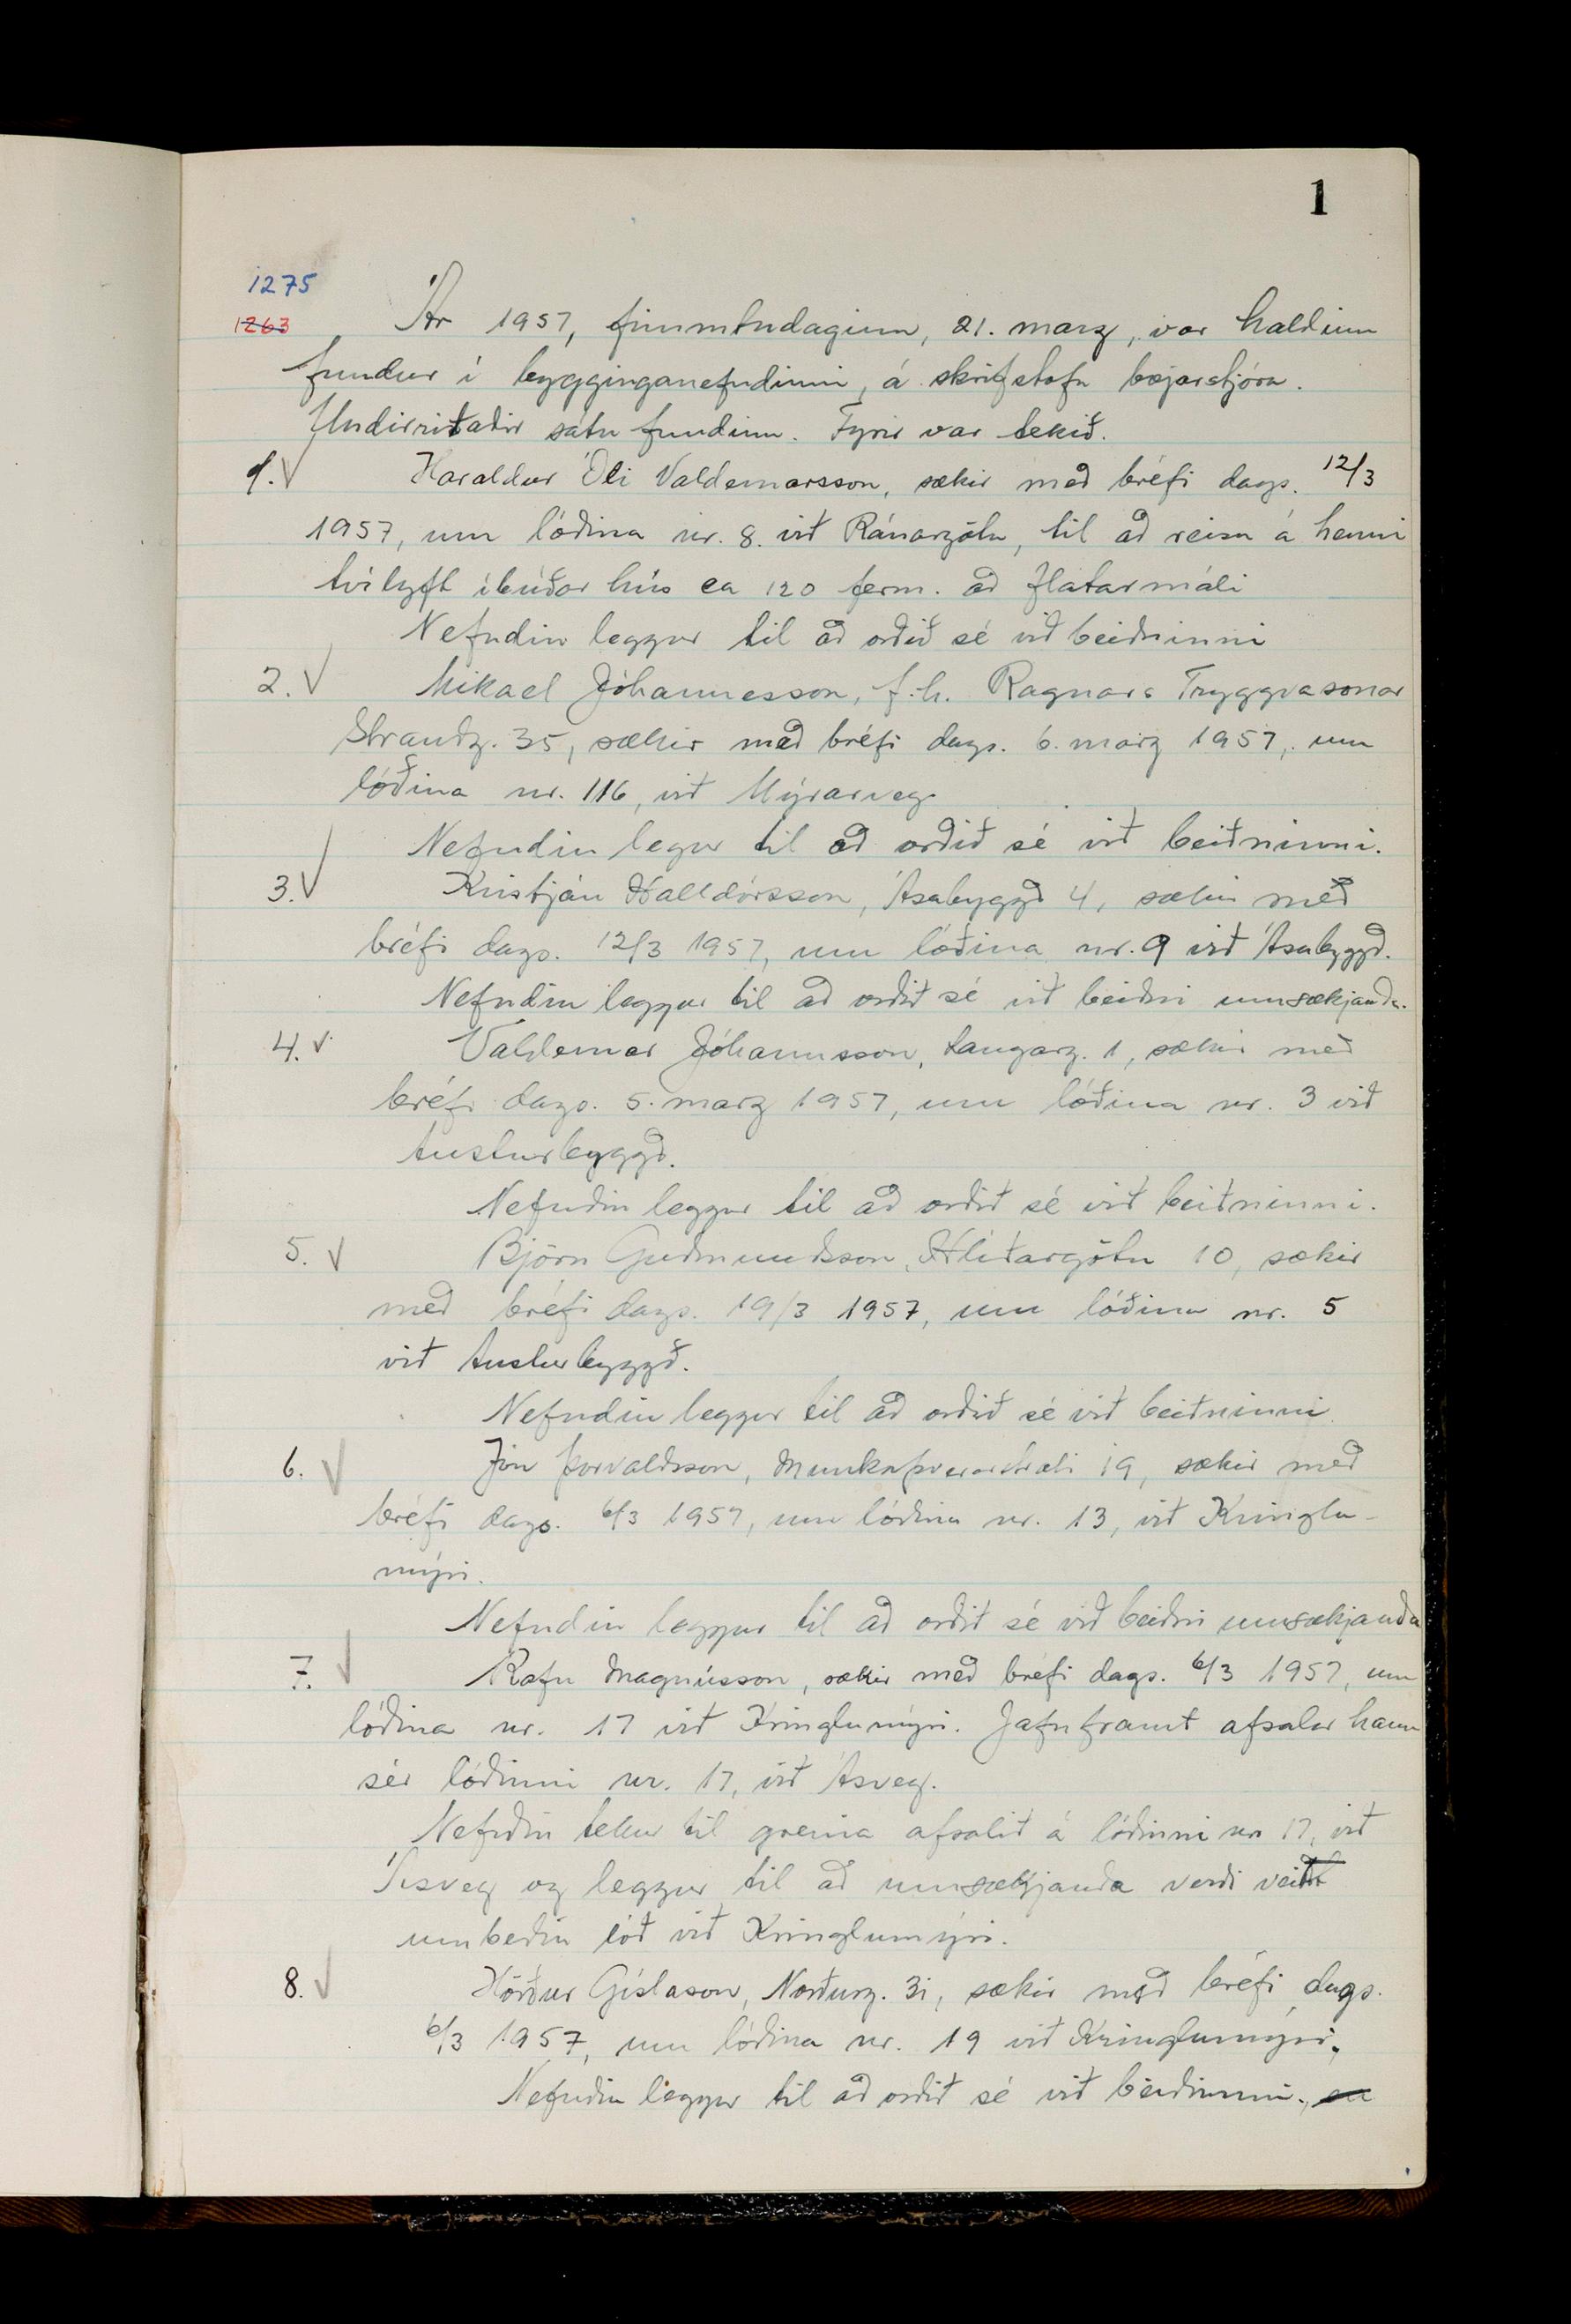 1
1275
1263
Ár 1957, fimmtudaginn, 21. marz, var haldinn
fundur í bygginganefndinni, á skrifstofu bæjarstjóra.
Undirritaðir sátu fundinn. Fyrir var tekið.
1. √ Haraldur Óli Valdemarsson, sækir með bréfi dags. 12/3
1957, um lóðina nr. 8. við Ránargötu, til að reisa á henni
tvílyft íbúðar hús ca 120 ferm. að flatarmáli
Nefndin leggur til að orðið sé við beiðninni
2. √ Mikael Jóhannesson, f.h. Ragnars Tryggvasonar
Strandg. 35, sækir með bréfi dags. 6. marz 1957, um
lóðina nr. 116, við Mýrarveg
Nefndin legur til að orðið sé við beiðninni.
3. √ Kristján Halldórsson, Ásabyggð 4, sækir með
bréfi dags. 12/3 1957, um lóðina nr. 9 við Ásabyggð.
Nefndin leggur til að orðið sé við beiðni umsækjanda.
4. √ Valdemar Jóhannsson, Laugarg. 1, sækir með
bréfi dags. 5. marz 1957, um lóðina nr. 3 við
Austurbyggð.
Nefndin leggur til að orðið sé við beiðninni.
5. √ Björn Guðmundsson, Hlíðargötu 10, sækir
með bréfi dags. 19/3 1957, um lóðina nr. 5
við Austurbyggð.
Nefndin leggur til að orðið sé við beiðninni
6. √ Jón Þorvaldsson, Munkaþverárstræti 19, sækir með
bréfi dags. 6/3 1957, um lóðina nr. 13, við Kringlu-
mýri.
Nefndin leggur til að orðið sé við beiðni umsækjanda
7. √ Rafn Magnússon, sækir með bréfi dags. 6/3 1957, um
lóðina nr. 17 við Kringlumýri. Jafnframt afsalar hann
sér lóðinni nr. 17, við Ásveg.
Nefndin tekur til greina afsalið á lóðinni nr 17, við
Ásveg og leggur til að umsækjanda verði veitt
umbeðin lóð við Kringlumýri.
8. √ Hörður Gíslason, Norðurg. 31, sækir með bréfi dags.
6/3 1957, um lóðina nr. 19 við Kringlumýri.
Nefndin leggur til að orðið sé við beiðninni., en